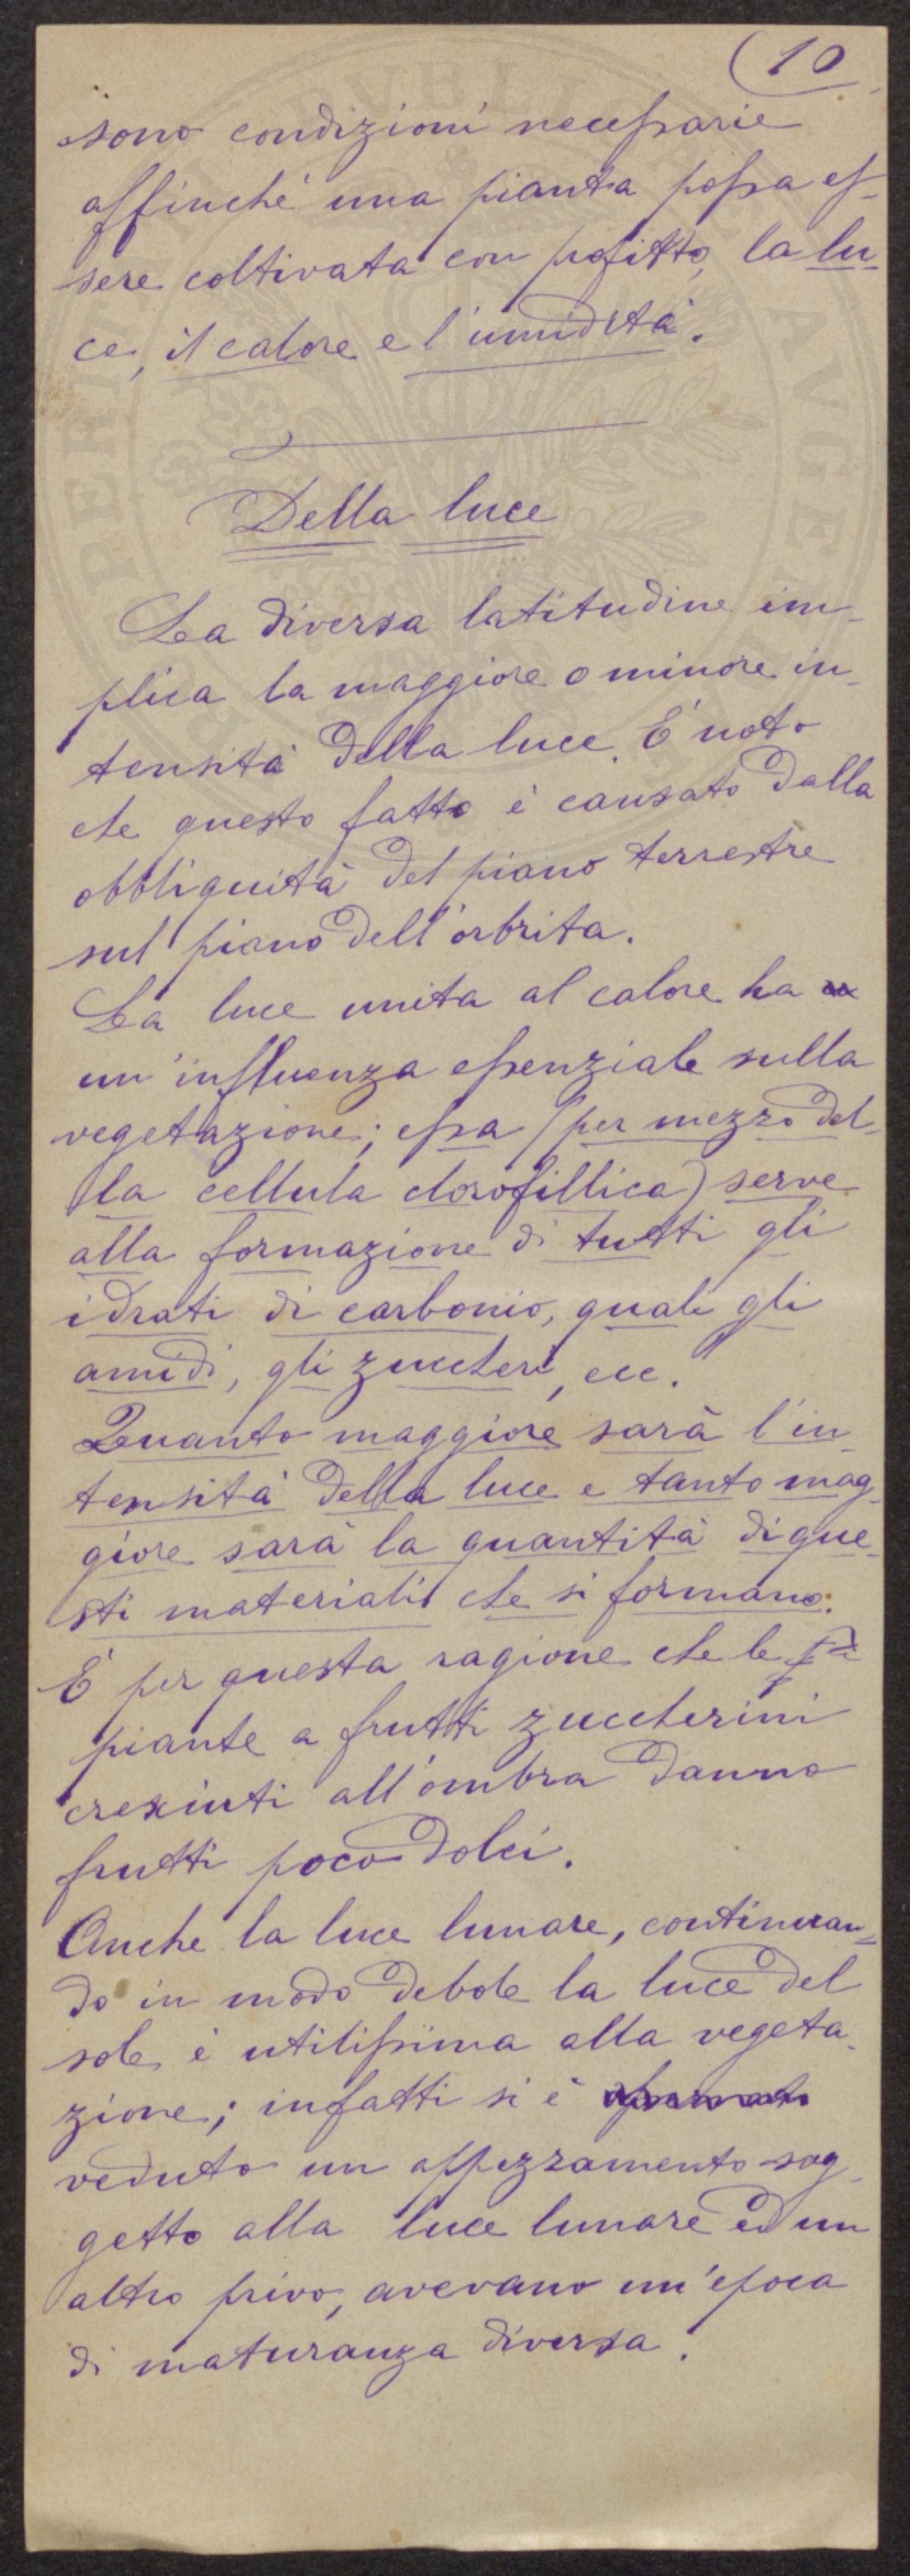 (10
sono condizioni necessarie
affinché una pianta possa es-
sere coltivata con profitto, la lu-
ce, il calore e l'umidità.
Della luce
La diversa latitudine im-
plica la maggiore o minore in-
tensità della luce. È noto
che questo fatto è causato dalla
obbliquità del piano terrestre
sul piano dell'orbrita.
La luce unita al calore ha
un'influenza essenziale sulla
vegetazione; essa (per mezzo del-
la cellula clorofillica) serve
alla formazione di tutti gli
idrati di carbonio, quali gli
amidi, gli zuccheri, ecc.
Quanto maggiore sarà l'in-
tensità della luce e tanto mag-
giore sarà la quantità di que-
sti materiali che si formano.
È per questa ragione che le
piante a frutti zuccherini
cresciuti all'ombra danno
frutti poco dolci.
Anche la luce lunare, continuan-
do in modo debole la luce del
sole è utilissima alla vegeta-
zione; infatti si è
veduto un appezzamento sog-
getto alla luce lunare ed un
altro privo, avevano un'epoca
di maturanza diversa.